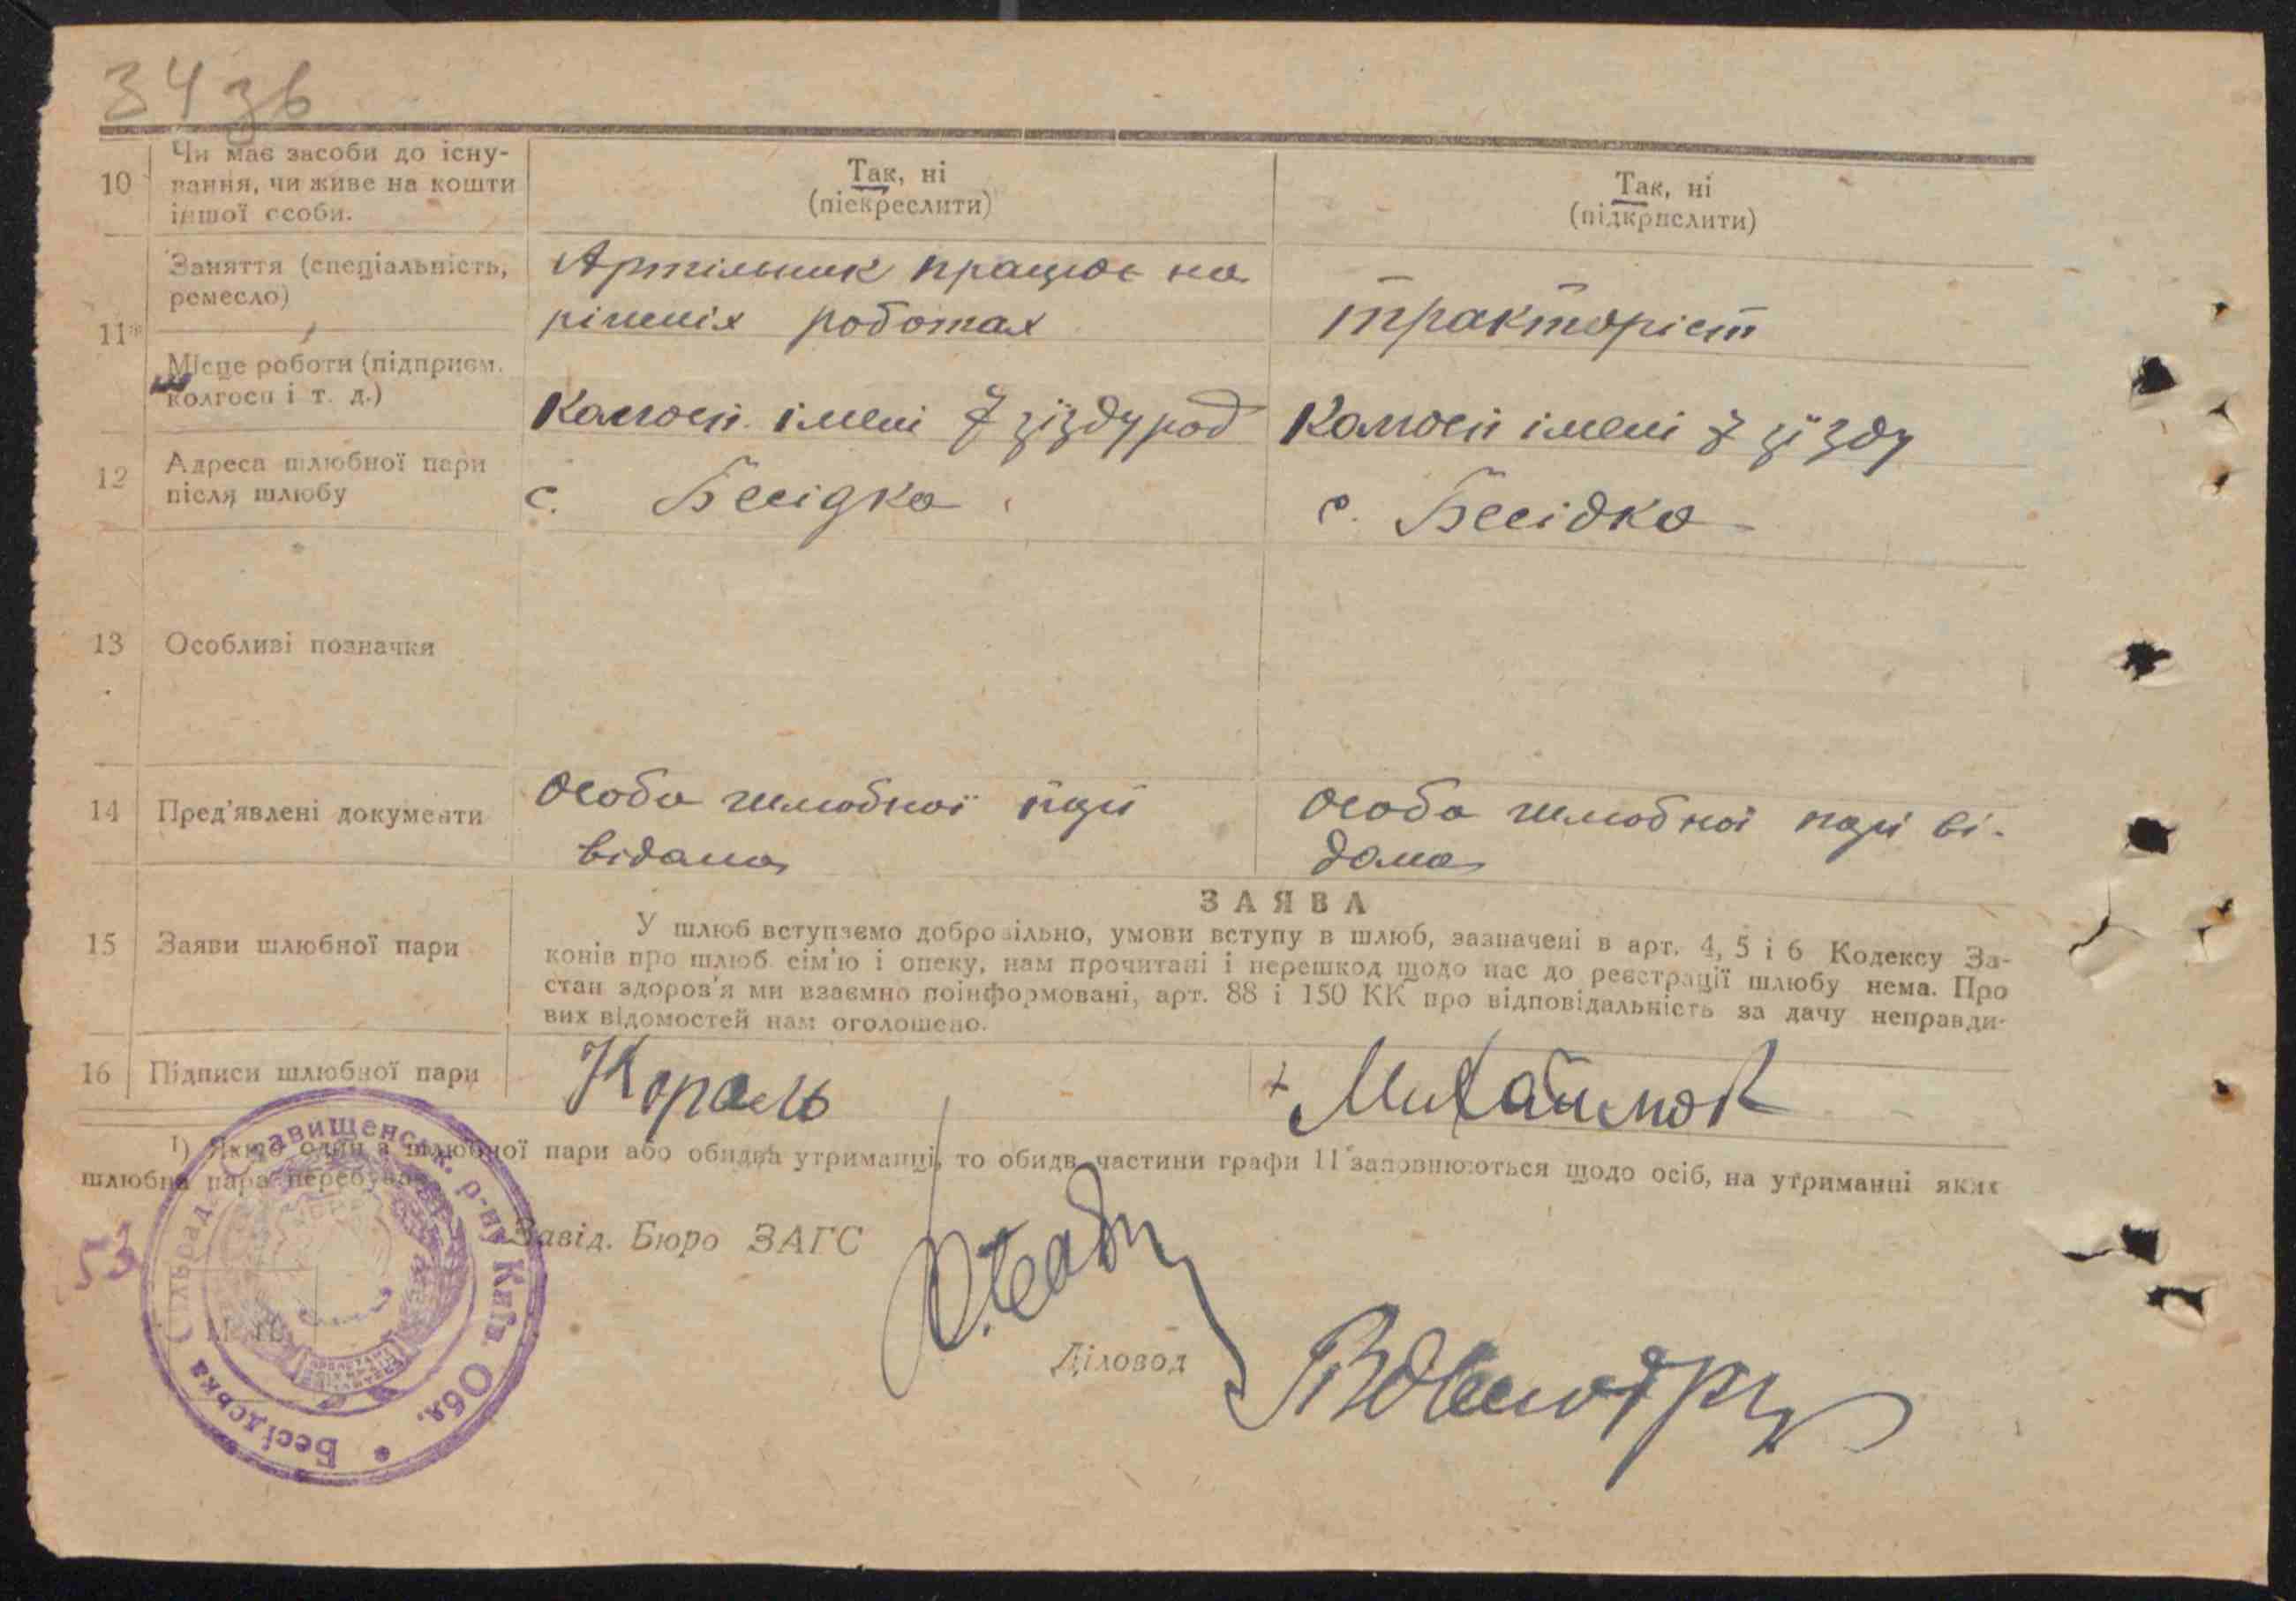 34 зв
10
Чи має засоби до існу-
вання, чи живе на кошти
іншої особи.
Так, ні
(піекреслити)
Так, ні
(підкрислити)
11
Заняття (спеціальність,
ремесло)
Артільник працює на
різних роботах
тракторіст
Місце роботи (підприєм.
колгосп і т. д.)
Колгосп імені 7 зїзду рад
Колгосп імені 7 зїзду
12
Адреса шлюбної пари
після шлюбу
с. Бесідка
с. Бесідка
13
Особливі позначки
14
Пред'явлені документи
Особа шлюбної парі
відама
Особа шлюбної парі ві-
дома
ЗАЯВА
15
Заяви шлюбної пари
У шлюб вступаємо добровільно, умови вступу в шлюб, зазначені в арт. 4, 5 і 6 Кодексу За-
конів про шлюб сім'ю і опеку, нам прочитані і перешкод щодо нас до реєстрації шлюбу нема. Про
стан здоров'я ми взаємно поінформовані, арт. 88 і 150 КК про відповідальність за дачу неправди-
вих відомостей нам оголошено.
16
Підписи шлюбної пари
Король
+ Михайлюк
1) Якщо один з шлюбної пари або обидва утриманці, то обидв частини графи 11 заповнюються щодо осіб, на утриманні яких
шлюбна пара перебуває.
53
Завід. Бюро ЗАГС
Діловод
М. П.
Бесідська Сільрада Ставищенськ. р-ну Київ. Обл.